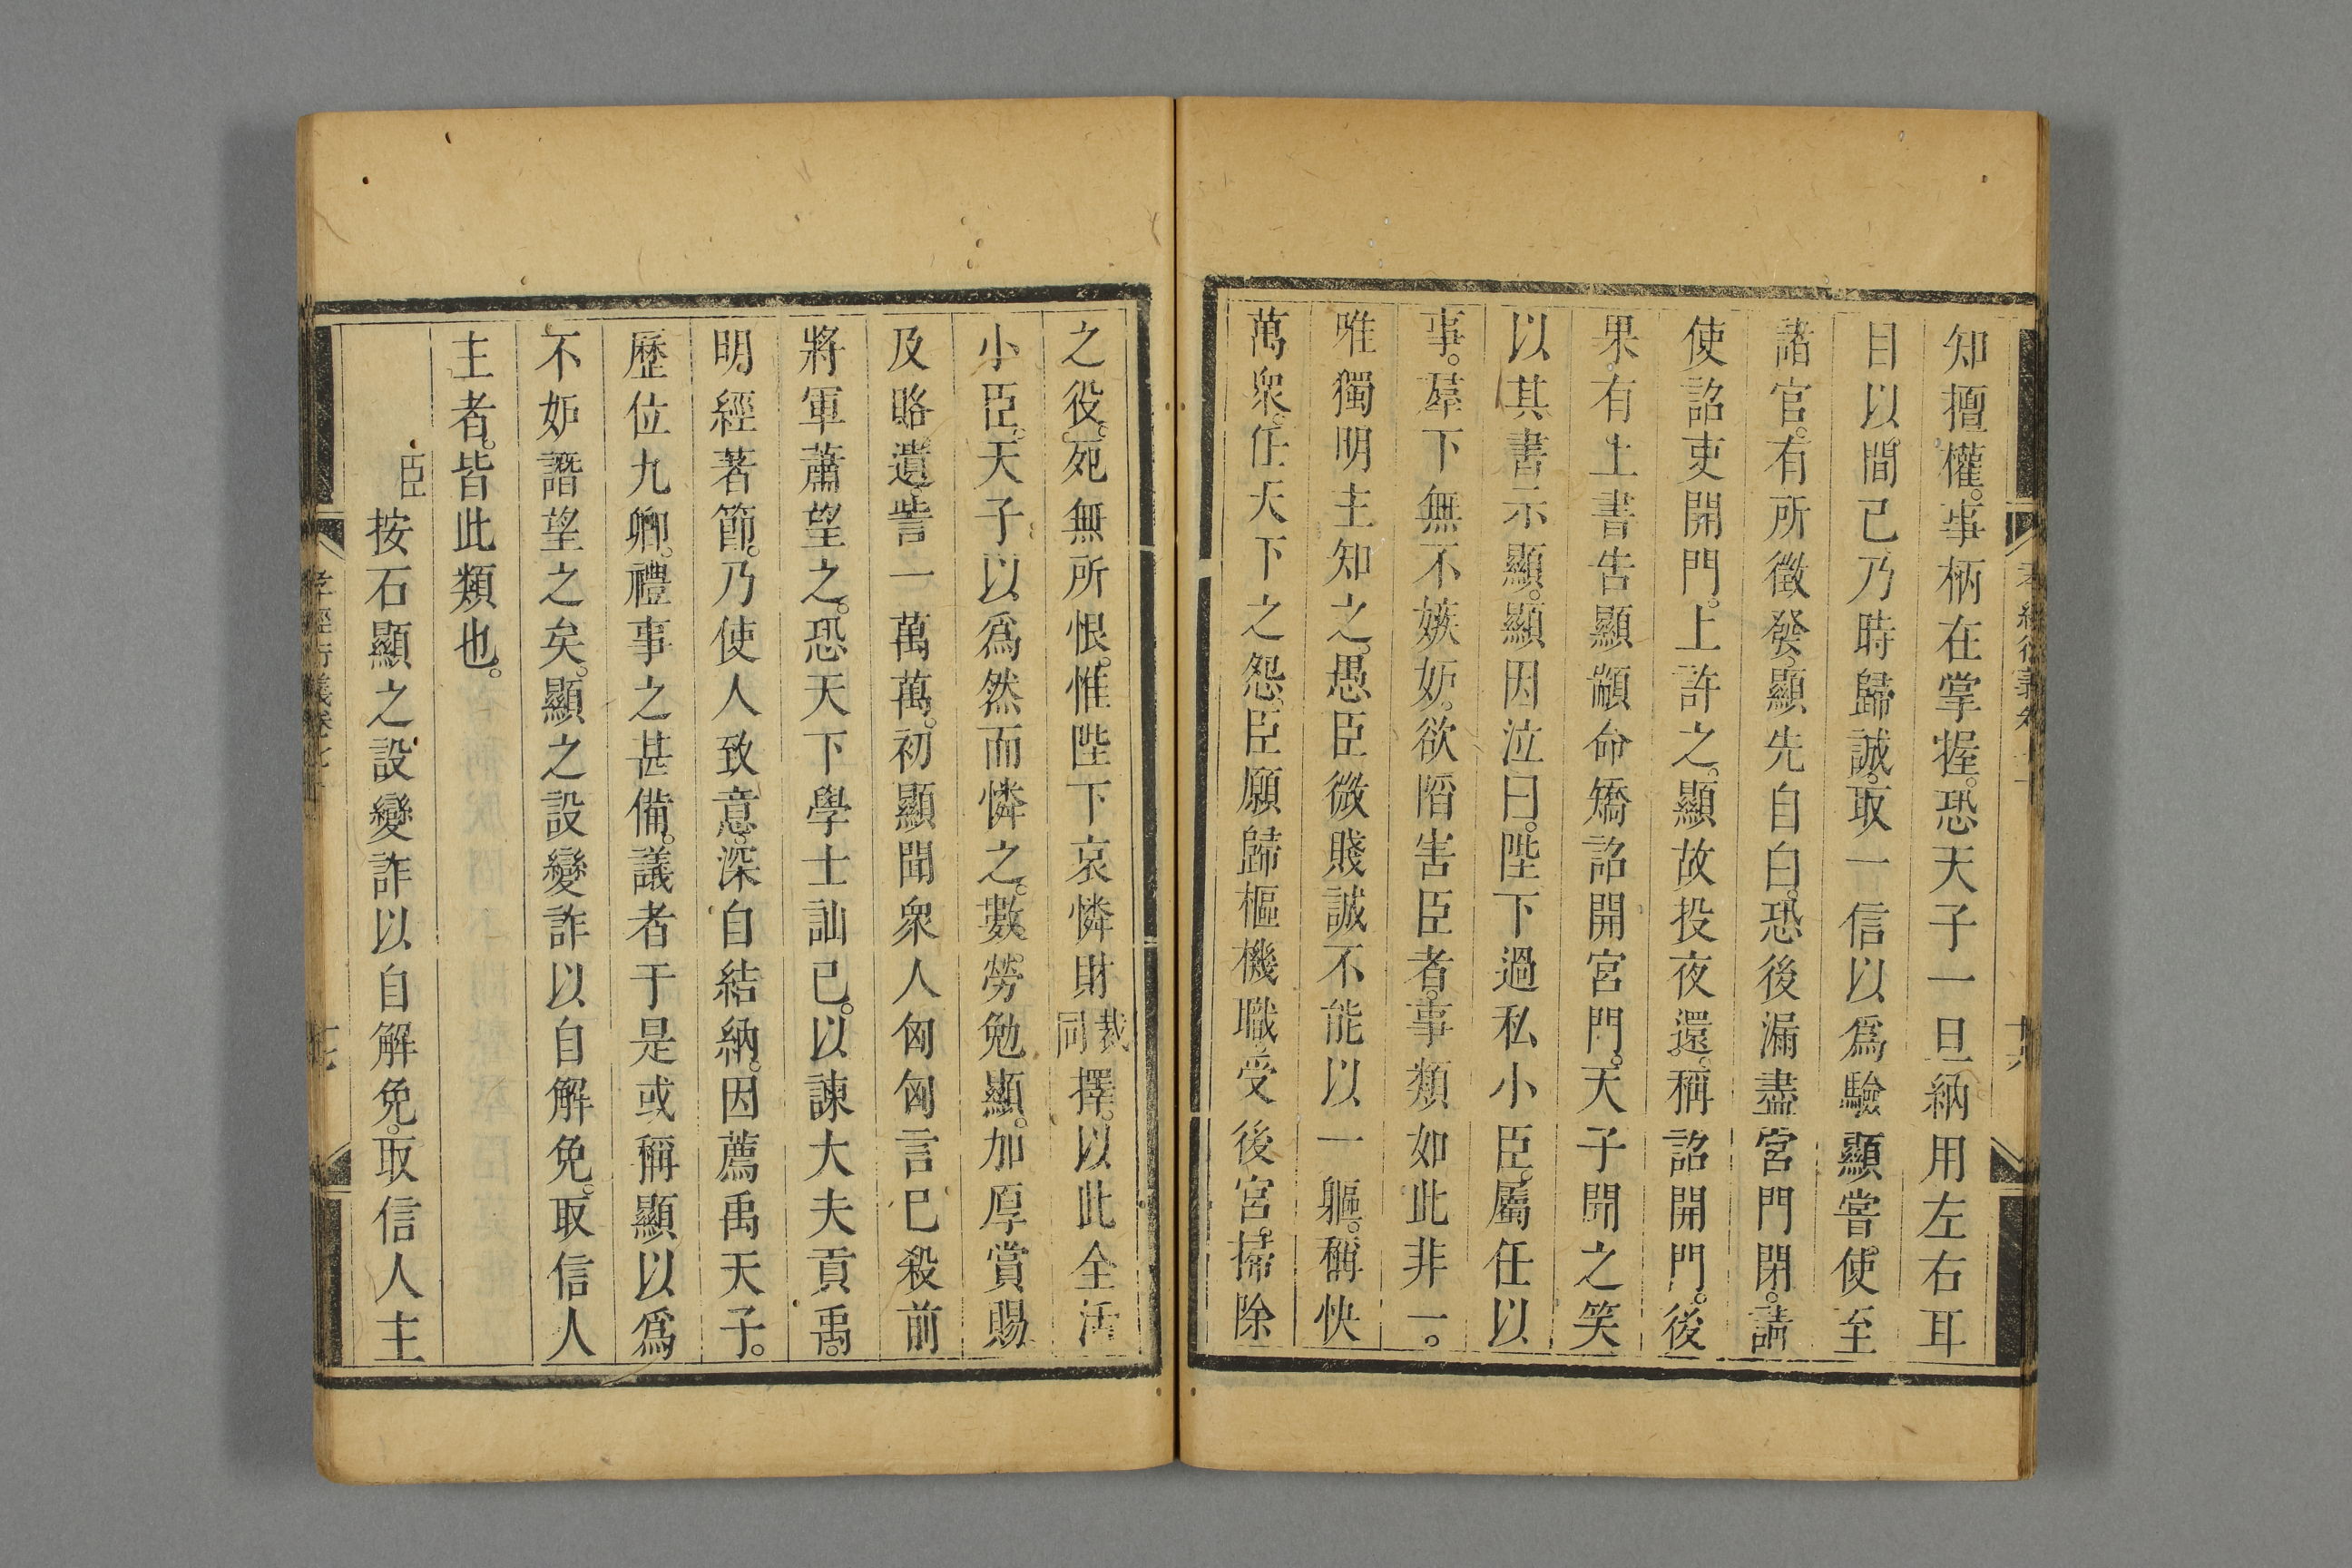 知擅權。事柄在掌握。恐天子一旦納用左右耳
目以間己乃時歸誠。取一信以爲驗顯嘗使至
諸官。有所徵發。顯先自白。恐後漏盡宮門閉。請
使詔吏開門。上許之。顯故投夜還。稱詔開門。後
果有上書告顯顓命矯詔開宮門。天子聞之笑
以其書示顯。顯因泣曰。陛下過私小臣。屬任以
事。羣下無不嫉妒。欲陷害臣者。事類如此非一。
唯獨明主知之。愚臣微賤誠不能以一軀。稱快
萬衆。任天下之怨。臣願歸樞機職。受後宮。掃除
之役。死無所恨。惟陛下哀憐財裁同擇。以此全活
小臣。天子以爲然而憐之。數。勞勉顯。加厚賞賜
及賂遺訾一萬萬。初顯聞衆人匈匈言已殺前
將軍蕭望之。恐天下學士訕己。以諫大夫貢禹。
明經著節。乃使人致意。深自結納。因薦禹天子。
歷位九卿。禮事之甚備。議者于是或稱顯以爲
不妒譖望之矣。顯之設變詐以自解免。取信人
主者。皆此類也。
臣按石顯之設變詐以自解免。取信人主
孝經衍義卷七十
十七